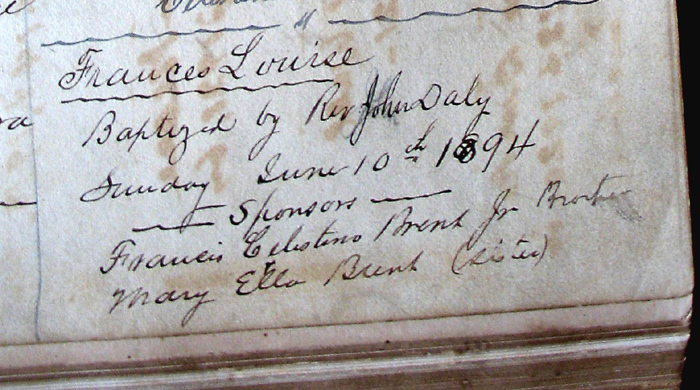 Frances Louise
Baptized by Rev John Daly
Sunday June 10th 1894
Sponsors
Francis Celestino Brent Jr Brother
Mary Ella Brent (Sister)